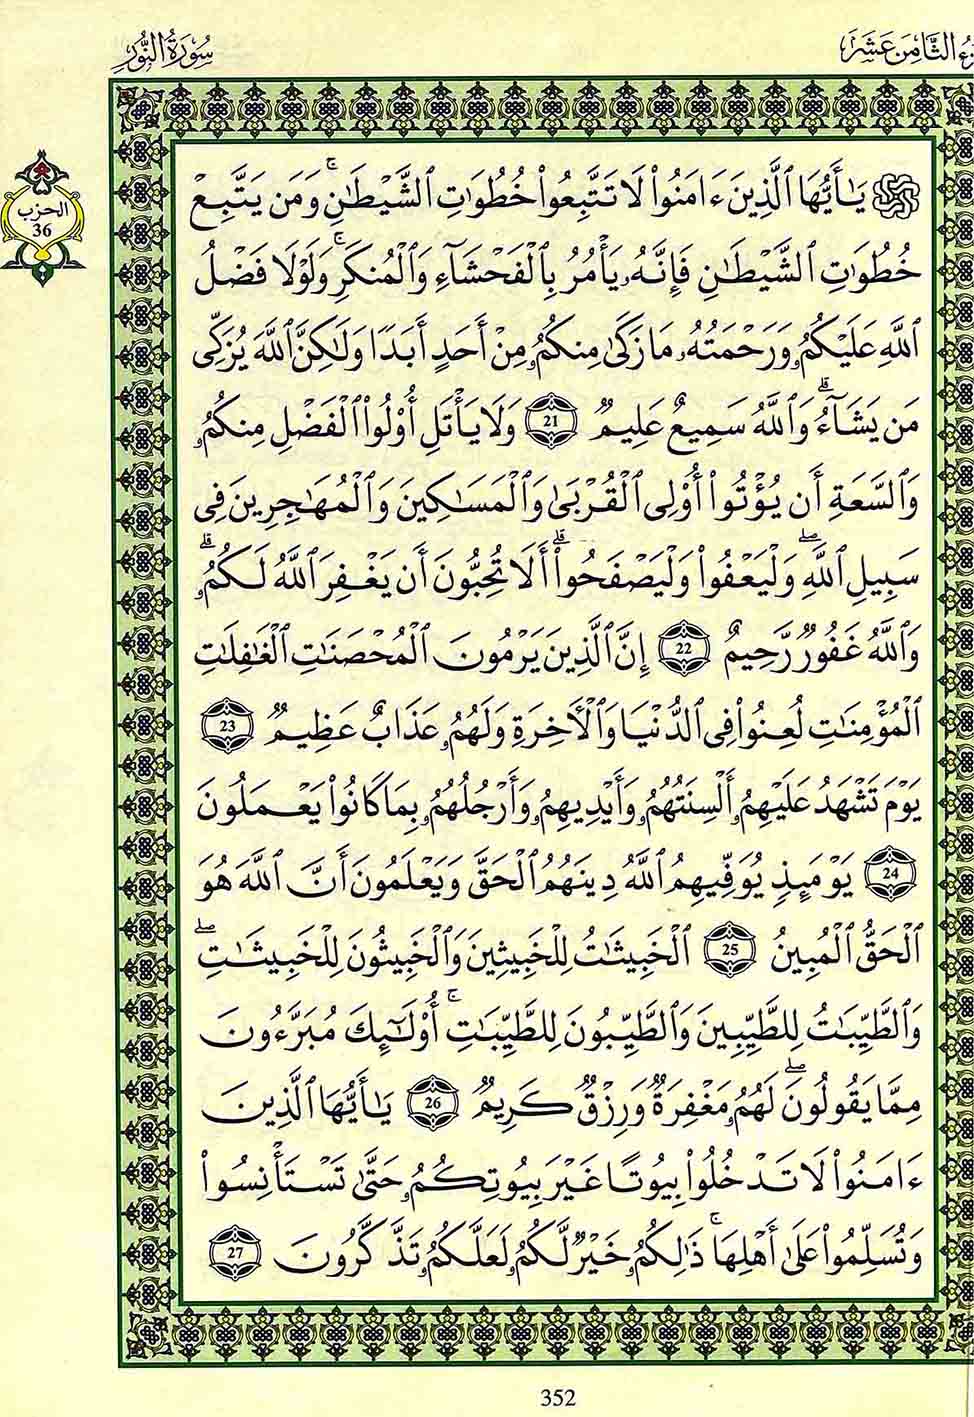 زْءُ الثَّامِنَ عَشَرَ
سُورَةُ النُّور
يَٰٓأَيُّهَا ٱلَّذِينَ ءَامَنُوا۟ لَا تَتَّبِعُوا۟ خُطُوَٰتِ ٱلشَّيْطَٰنِ ۚ وَمَن يَتَّبِعْ
الحزب
36
خُطُوَٰتِ ٱلشَّيْطَٰنِ فَإِنَّهُۥ يَأْمُرُ بِٱلْفَحْشَآءِ وَٱلْمُنكَرِ ۚ وَلَوْلَا فَضْلُ
ٱللَّهِ عَلَيْكُمُۥ وَرَحْمَتُهُۥ مَا زَكَىٰ مِنكُمُۥ مِنْ أَحَدٍ أَبَدًا وَلَٰكِنَّ ٱللَّهَ يُزَكِّى
مَن يَشَآءُ ۗ وَٱللَّهُ سَمِيعٌ عَلِيمٌ 21 وَلَا يَأْتَلِ أُو۟لُوا۟ ٱلْفَضْلِ مِنكُمُۥ
وَٱلسَّعَةِ أَن يُؤْتُوٓا۟ أُو۟لِى ٱلْقُرْبَىٰ وَٱلْمَسَٰكِينَ وَٱلْمُهَٰجِرِينَ فِى
سَبِيلِ ٱللَّهِ ۖ وَلْيَعْفُوا۟ وَلْيَصْفَحُوٓا۟ ۗ أَلَا تُحِبُّونَ أَن يَغْفِرَ ٱللَّهُ لَكُمُۥ ۗ
وَٱللَّهُ غَفُورٌ رَّحِيمٌ 22 إِنَّ ٱلَّذِينَ يَرْمُونَ ٱلْمُحْصَنَٰتِ ٱلْغَٰفِلَٰتِ
ٱلْمُؤْمِنَٰتِ لُعِنُوا۟ فِى ٱلدُّنْيَا وَٱلْأَخِرَةِ وَلَهُمُۥ عَذَابٌ عَظِيمٌ 23
يَوْمَ تَشْهَدُ عَلَيْهِمُۥ أَلْسِنَتُهُمُۥ وَأَيْدِيهِمُۥ وَأَرْجُلُهُمُۥ بِمَا كَانُوا۟ يَعْمَلُونَ
24 يَوْمَئِذٍ يُوَفِّيهِمُ ٱللَّهُ دِينَهُمُ ٱلْحَقَّ وَيَعْلَمُونَ أَنَّ ٱللَّهَ هُوَ
ٱلْحَقُّ ٱلْمُبِينُ 25 ٱلْخَبِيثَٰتُ لِلْخَبِيثِينَ وَٱلْخَبِيثُونَ لِلْخَبِيثَٰتِ ۖ
وَٱلطَّيِّبَٰتُ لِلطَّيِّبِينَ وَٱلطَّيِّبُونَ لِلطَّيِّبَٰتِ ۚ أُو۟لَٰٓئِكَ مُبَرَّءُونَ
مِمَّا يَقُولُونَ ۖ لَهُمُۥ مَغْفِرَةٌ وَرِزْقٌ كَرِيمٌ 26 يَٰٓأَيُّهَا ٱلَّذِينَ
ءَامَنُوا۟ لَا تَدْخُلُوا۟ بِيُوتًا غَيْرَ بِيُوتِكُمُۥ حَتَّىٰ تَسْتَأْنِسُوا۟
وَتُسَلِّمُوا۟ عَلَىٰٓ أَهْلِهَا ۚ ذَٰلِكُمُۥ خَيْرٌ لَّكُمُۥ لَعَلَّكُمُۥ تَذَّكَّرُونَ 27
352